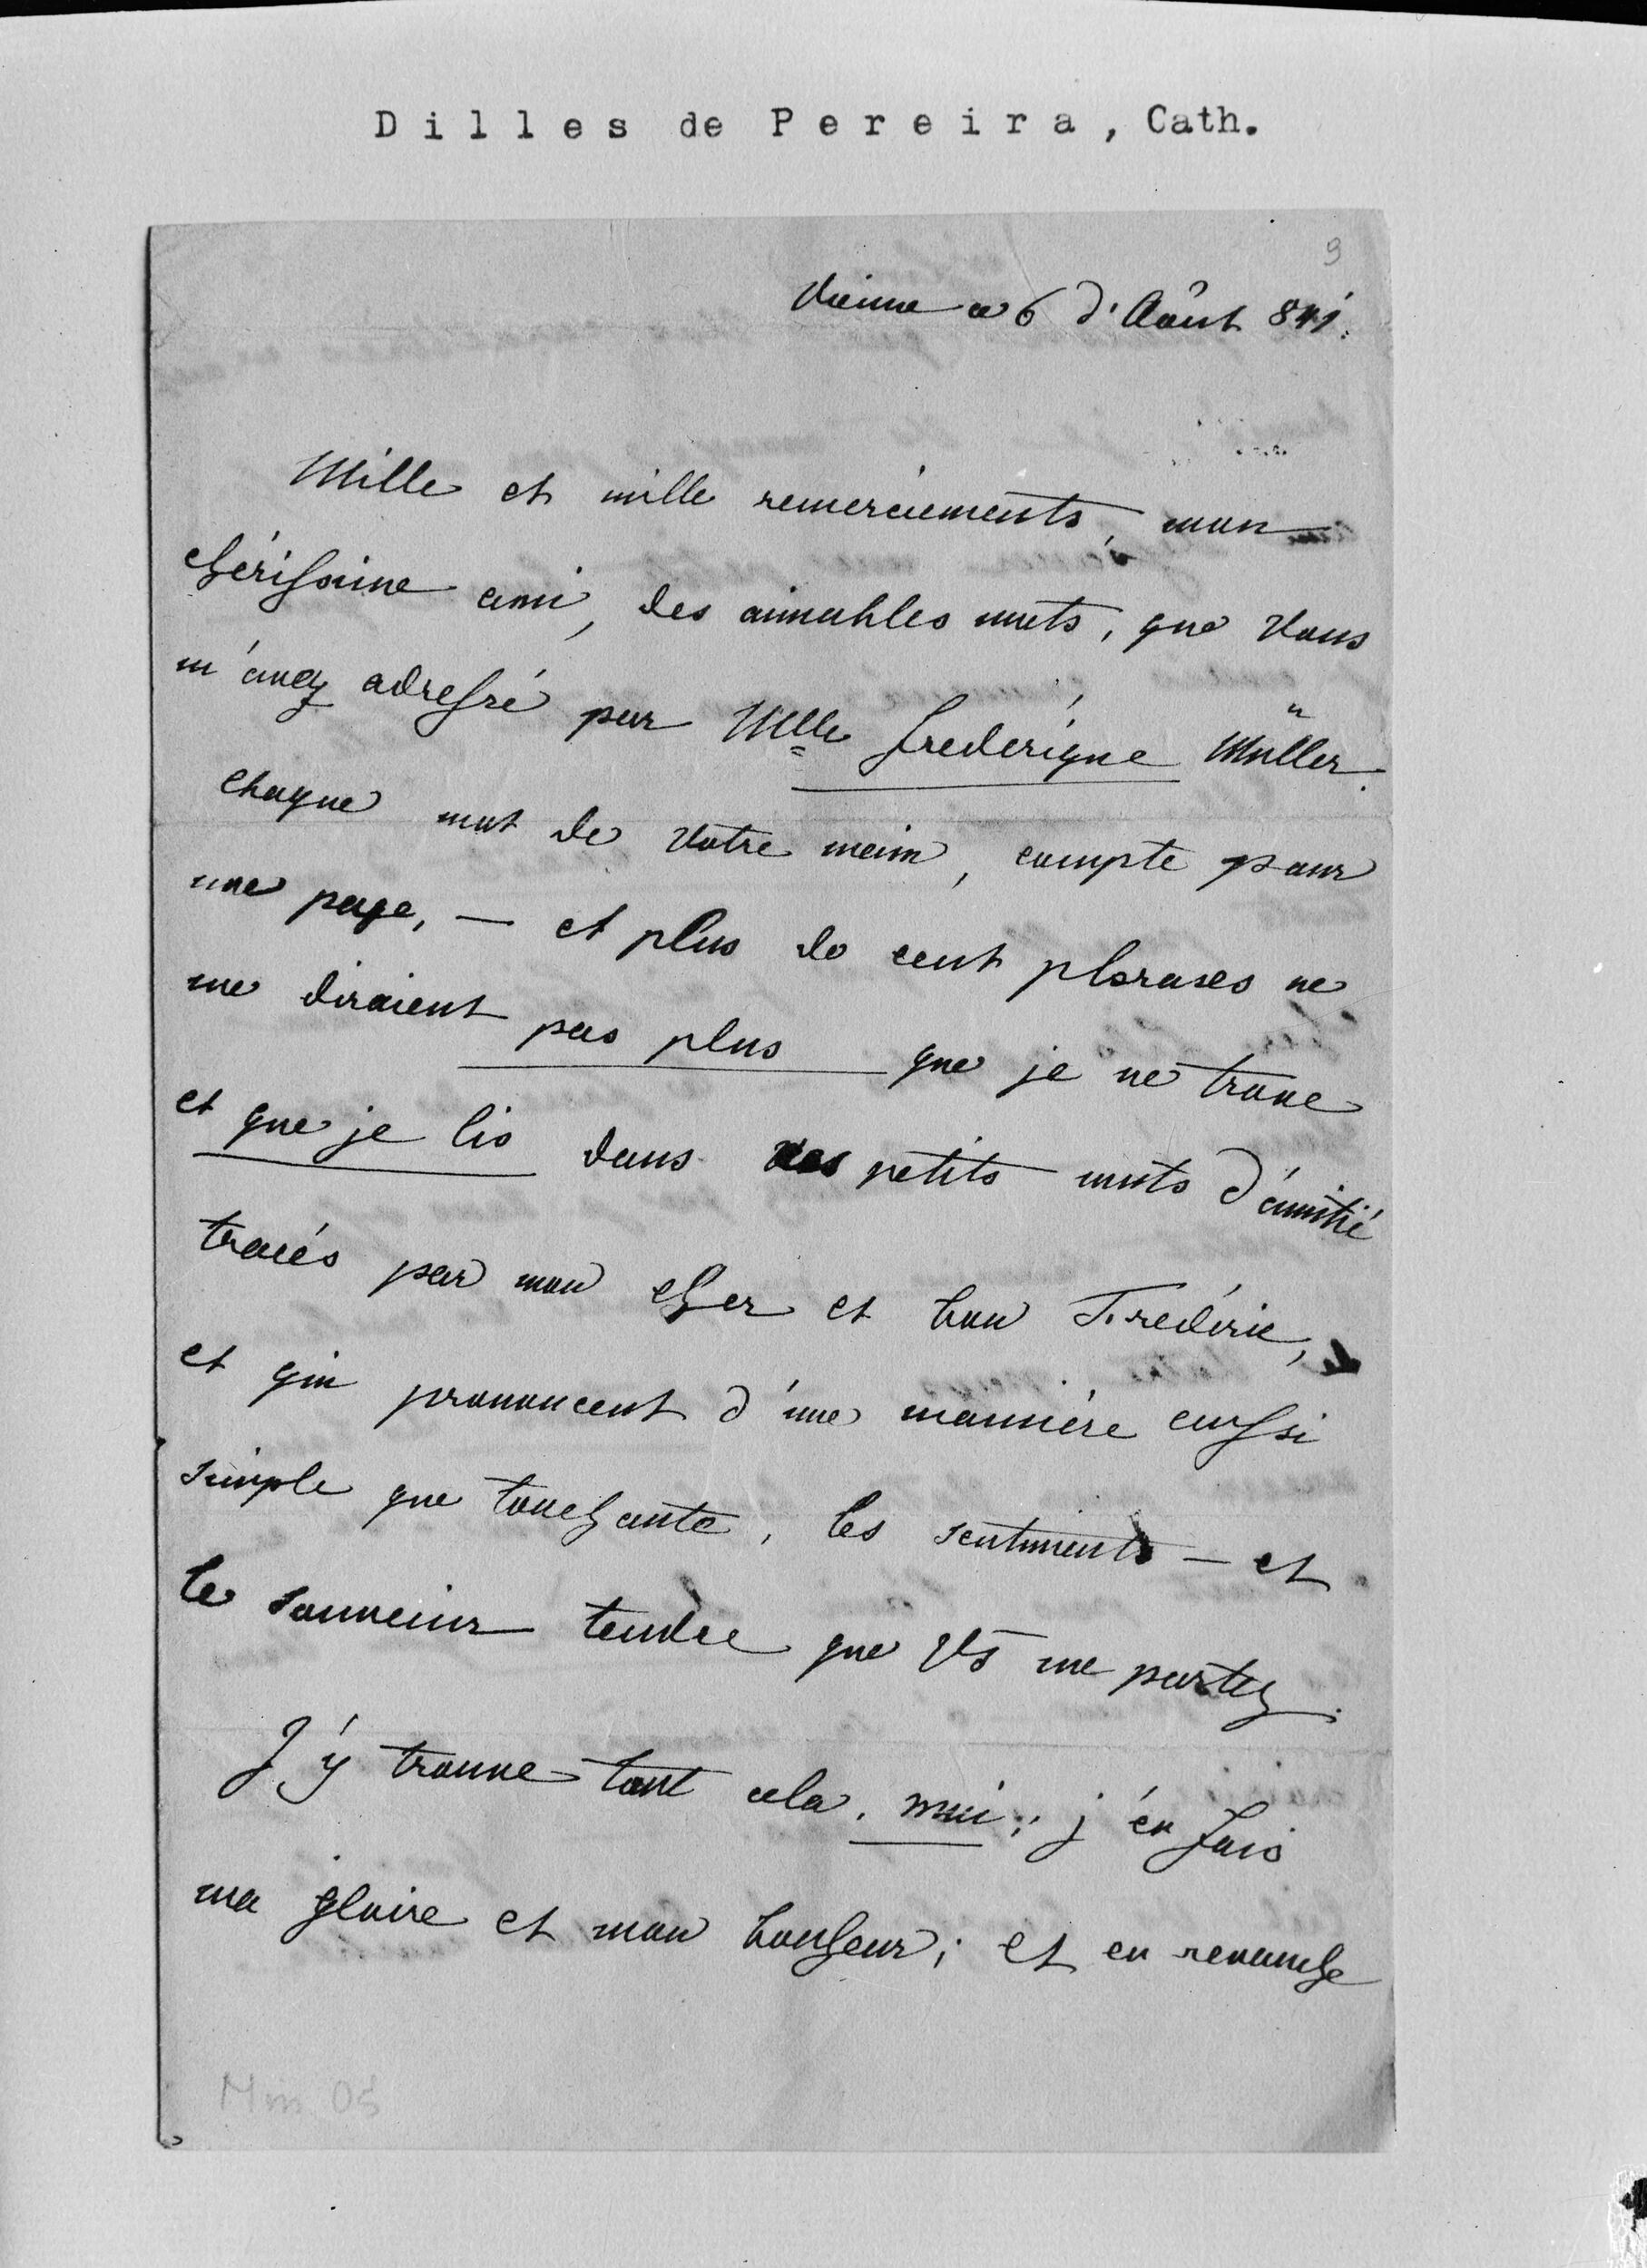 Dilles de Pereira, Cath.
9
Vienne ce 6 d'Août 841.
Mille et mille remerciements, mon
chérissime ami, des aimables mots, que Vous
m'avez adressé par Mlle Frederique Müller.
Chaque mot de Votre main, compte pour
une page, — et plus de cent phrases ne
me diraient pas plus que je ne trouve
et que je lis dans ces petits mots d'amitié
tracés par mon cher et bon Frederic,
et qui prononcent d'une manière aussi
simple que touchante, les sentiments — et
le souvenir tendre que Vs me portez.
J'y trouve tout cela, moi; j'en fais
ma gloire et mon bonheur; et en revanche